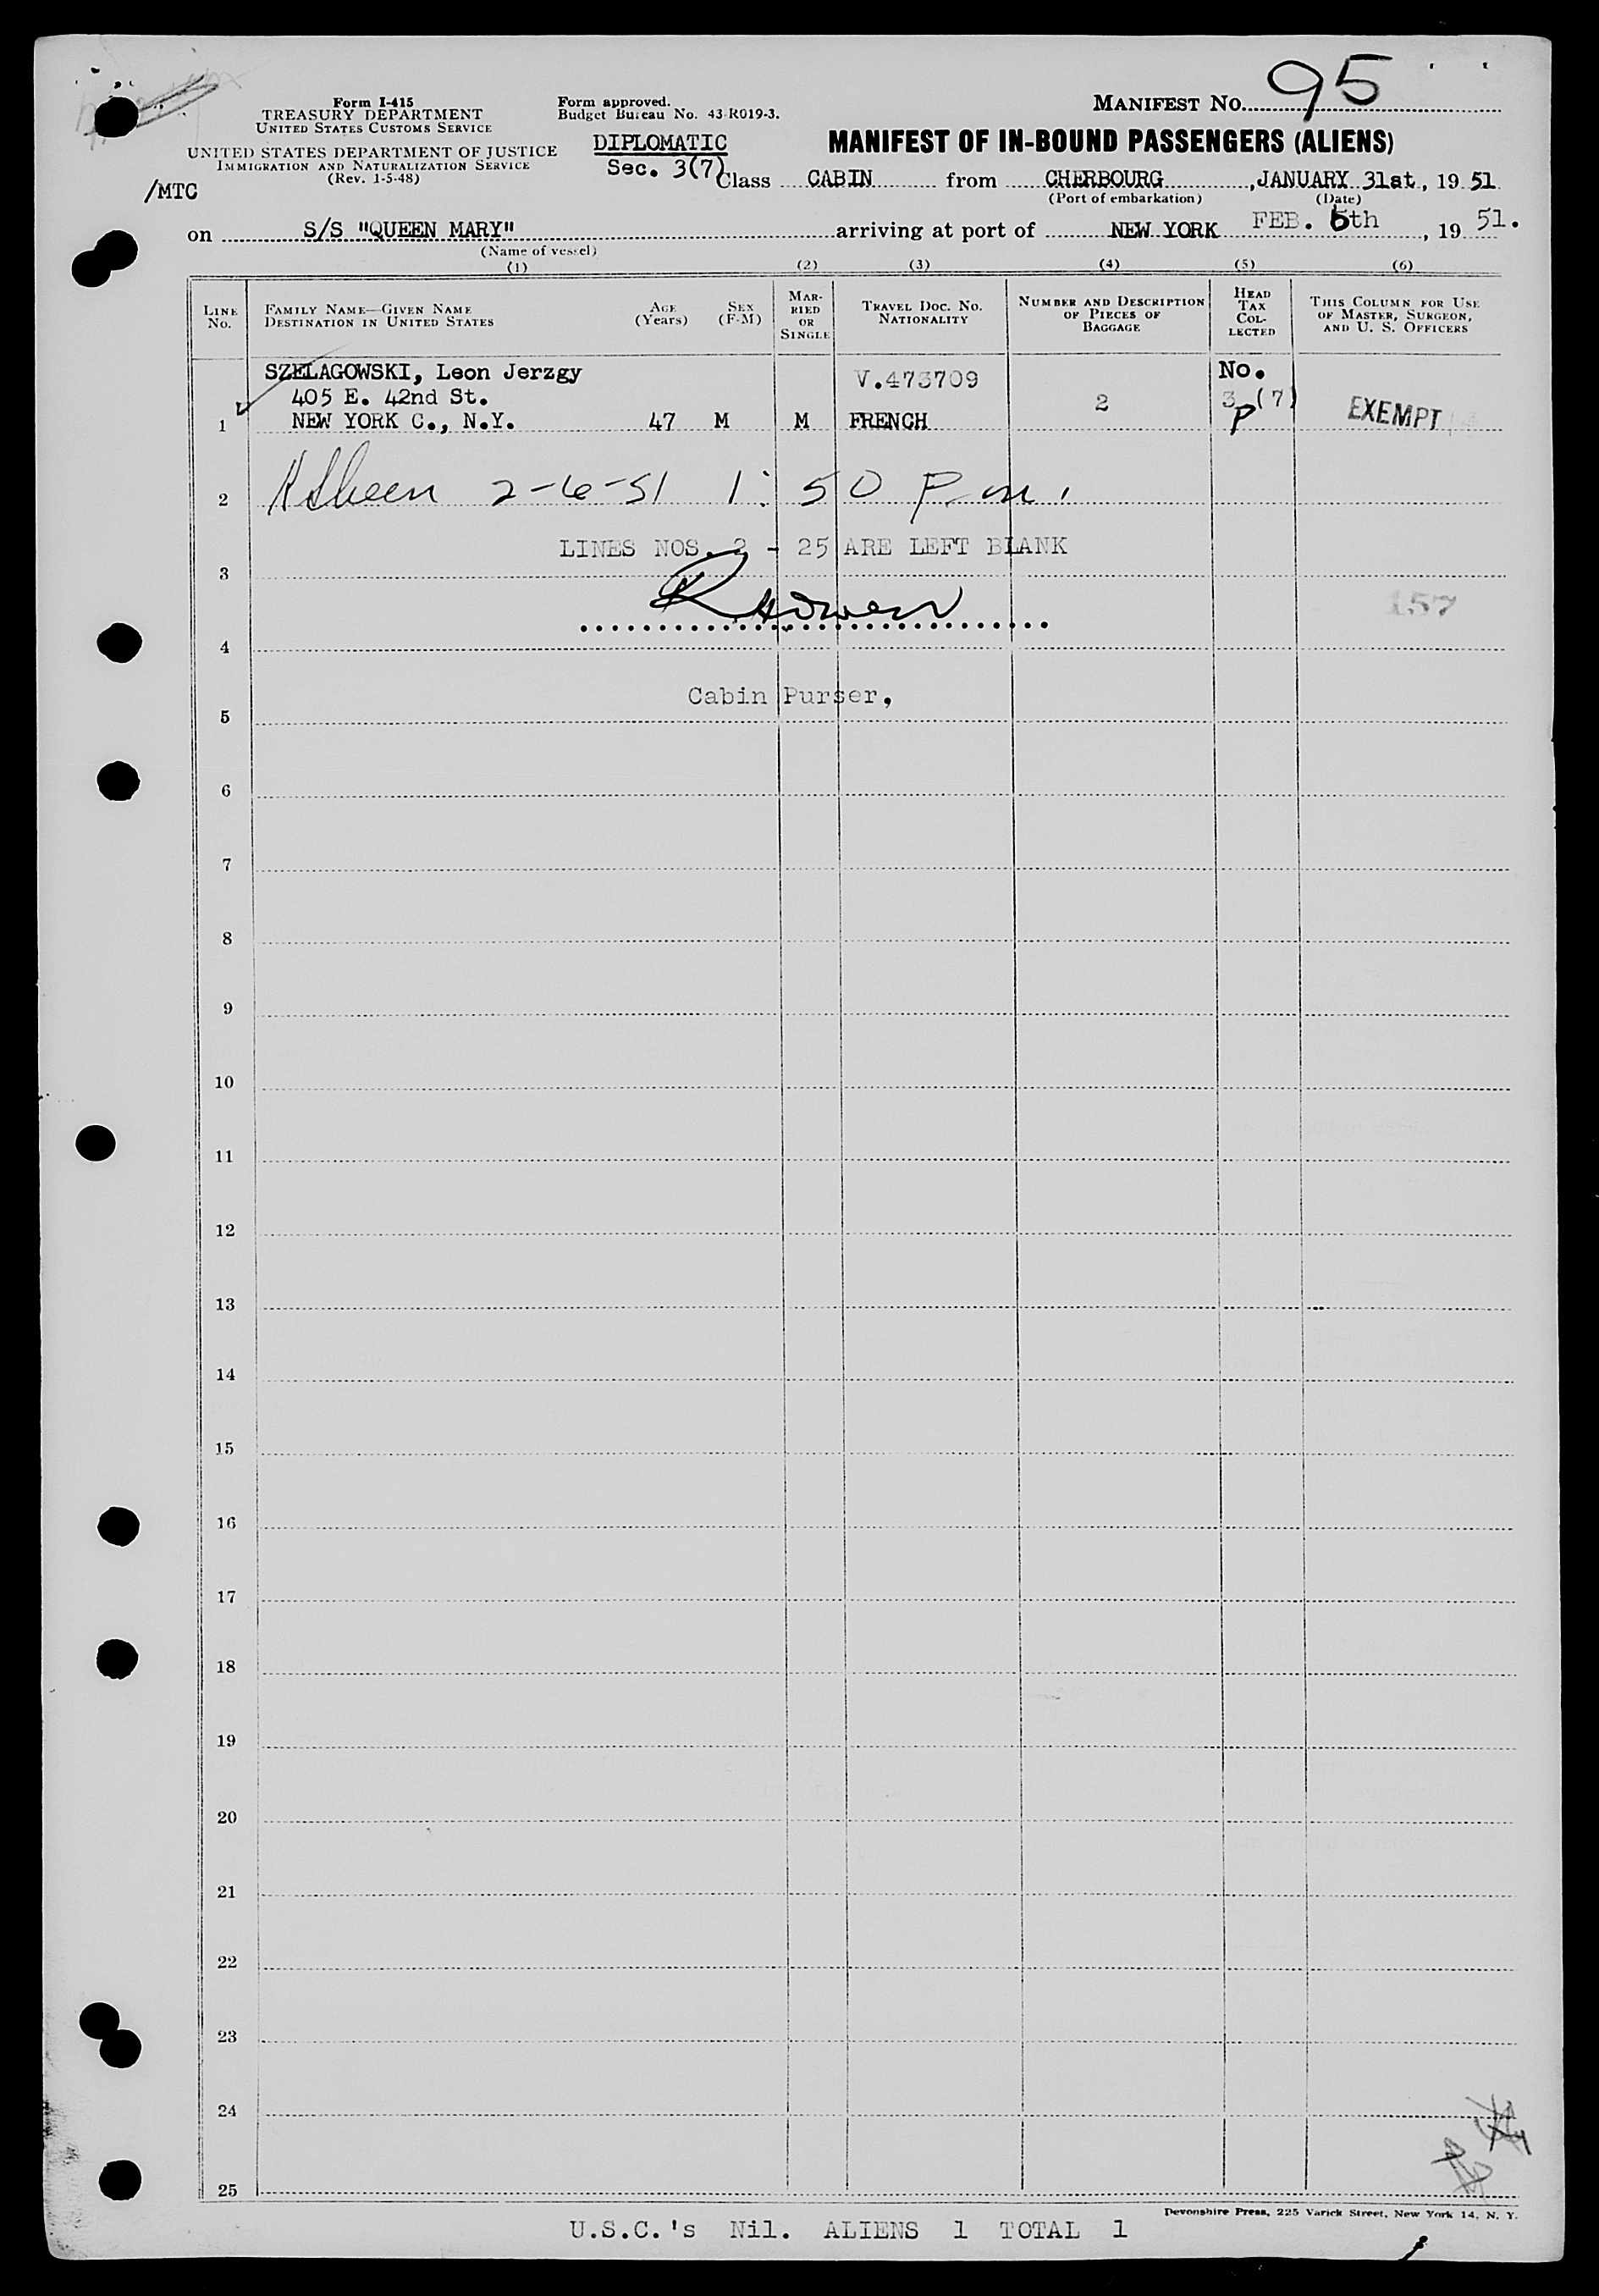 MANIFEST NO. 95
Form I-415
TREASURY DEPARTMENT
UNITED STATES CUSTOMS SERVICE
UNITED STATES DEPARTMENT OF JUSTICE
IMMIGRATION AND NATURALIZATION SERVICE
(Rev. 1-5-48)
/MTC
Form approved.
Budget Bureau No. 43-R019-3.
DIPLOMATIC
Sec. 3(7)
MANIFEST OF IN-BOUND PASSENGERS (ALIENS)
Class CABIN from CHERBOURG, JANUARY 31st, 19 51
(Port of embarkation) (Date)
on S/S "QUEEN MARY" arriving at port of NEW YORK FEB. 5th, 19 51.
(Name of vessel)
(1) (2) (3) (4) (5) (6)
LINE No.
FAMILY NAME—GIVEN NAME
DESTINATION IN UNITED STATES
AGE (Years)
SEX (F-M)
MARRIED OR SINGLE
TRAVEL DOC. NO.
NATIONALITY
NUMBER AND DESCRIPTION OF PIECES OF BAGGAGE
HEAD TAX COLLECTED
THIS COLUMN FOR USE OF MASTER, SURGEON, AND U. S. OFFICERS
SZELAGOWSKI, Leon Jerzgy V.473709 No.
405 E. 42nd St. 2 3 (7)
1 NEW YORK C., N.Y. 47 M M FRENCH P EXEMPT
2 2-6-51 1:50 P.m.
LINES NOS. 2 - 25 ARE LEFT BLANK
3
157
4
Cabin Purser.
5
6
7
8
9
10
11
12
13
14
15
16
17
18
19
20
21
22
23
24
25
Devonshire Press, 225 Varick Street, New York 14, N. Y.
U.S.C.'s Nil. ALIENS 1 TOTAL 1